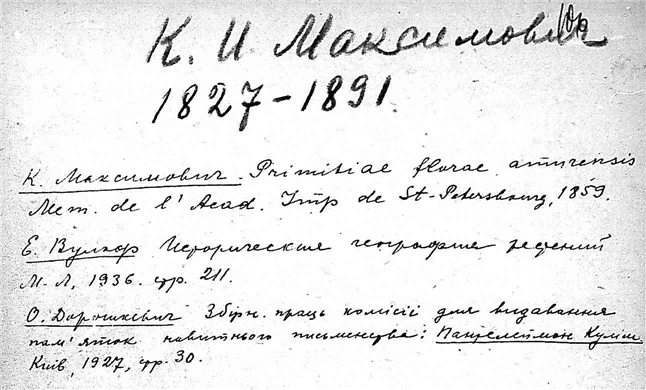 К. И. Максимович
1827-1891.
К. Максимович. Primitiae florae amurensis
Mem. de l' Acad. Imp de St-Petersbourg, 1859.
Е. Вульф Историческая география растений
М-Л, 1936. стр. 211.
О. Дорошкевич Збірн. праць комісії для видавання
пам'яток новитнього письменства: Пантелеймон Куліш
Київ, 1927, стр. 30.